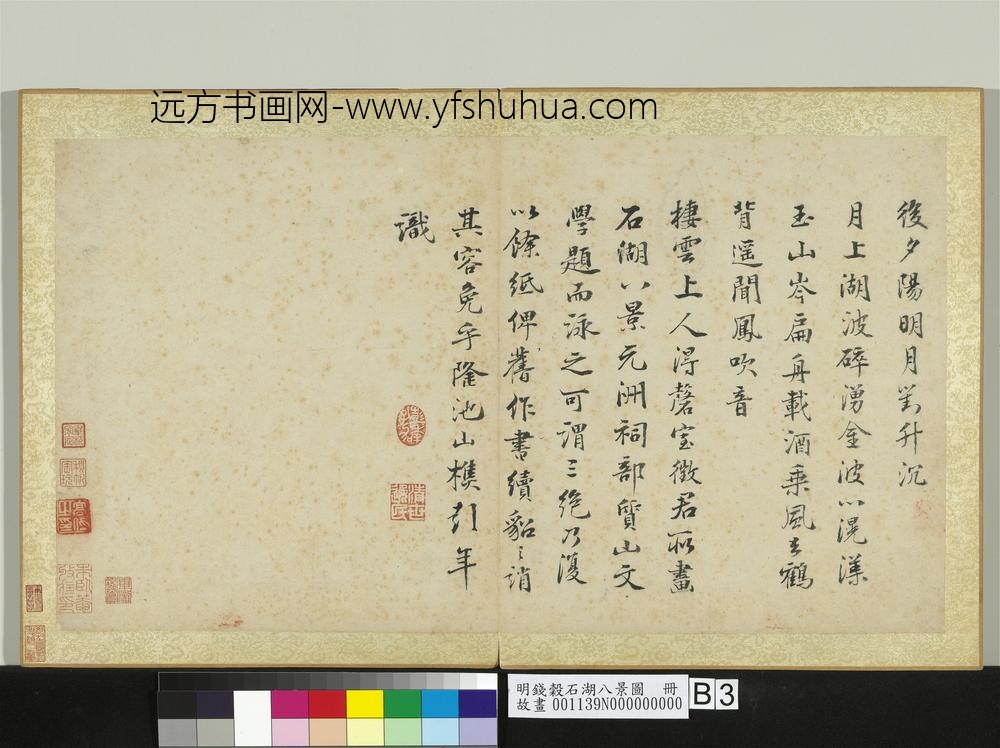 远方书画网-www.yfshuhua.com
後夕陽明月對升沉
月上湖波碎湧金波心滉漾
玉山岑扁舟載酒乗風去鶴
背遥聞鳳吹音
棲雲上人得磬室徴君所畫
石湖八景元洲祠部質山文
學題而詠之可謂三絶乃復
以餘紙俾舊作書續貂之誚
其容免乎隆池山樵彭年
識
明錢穀石湖八景圖 冊
故畫 001139N000000000
B 3